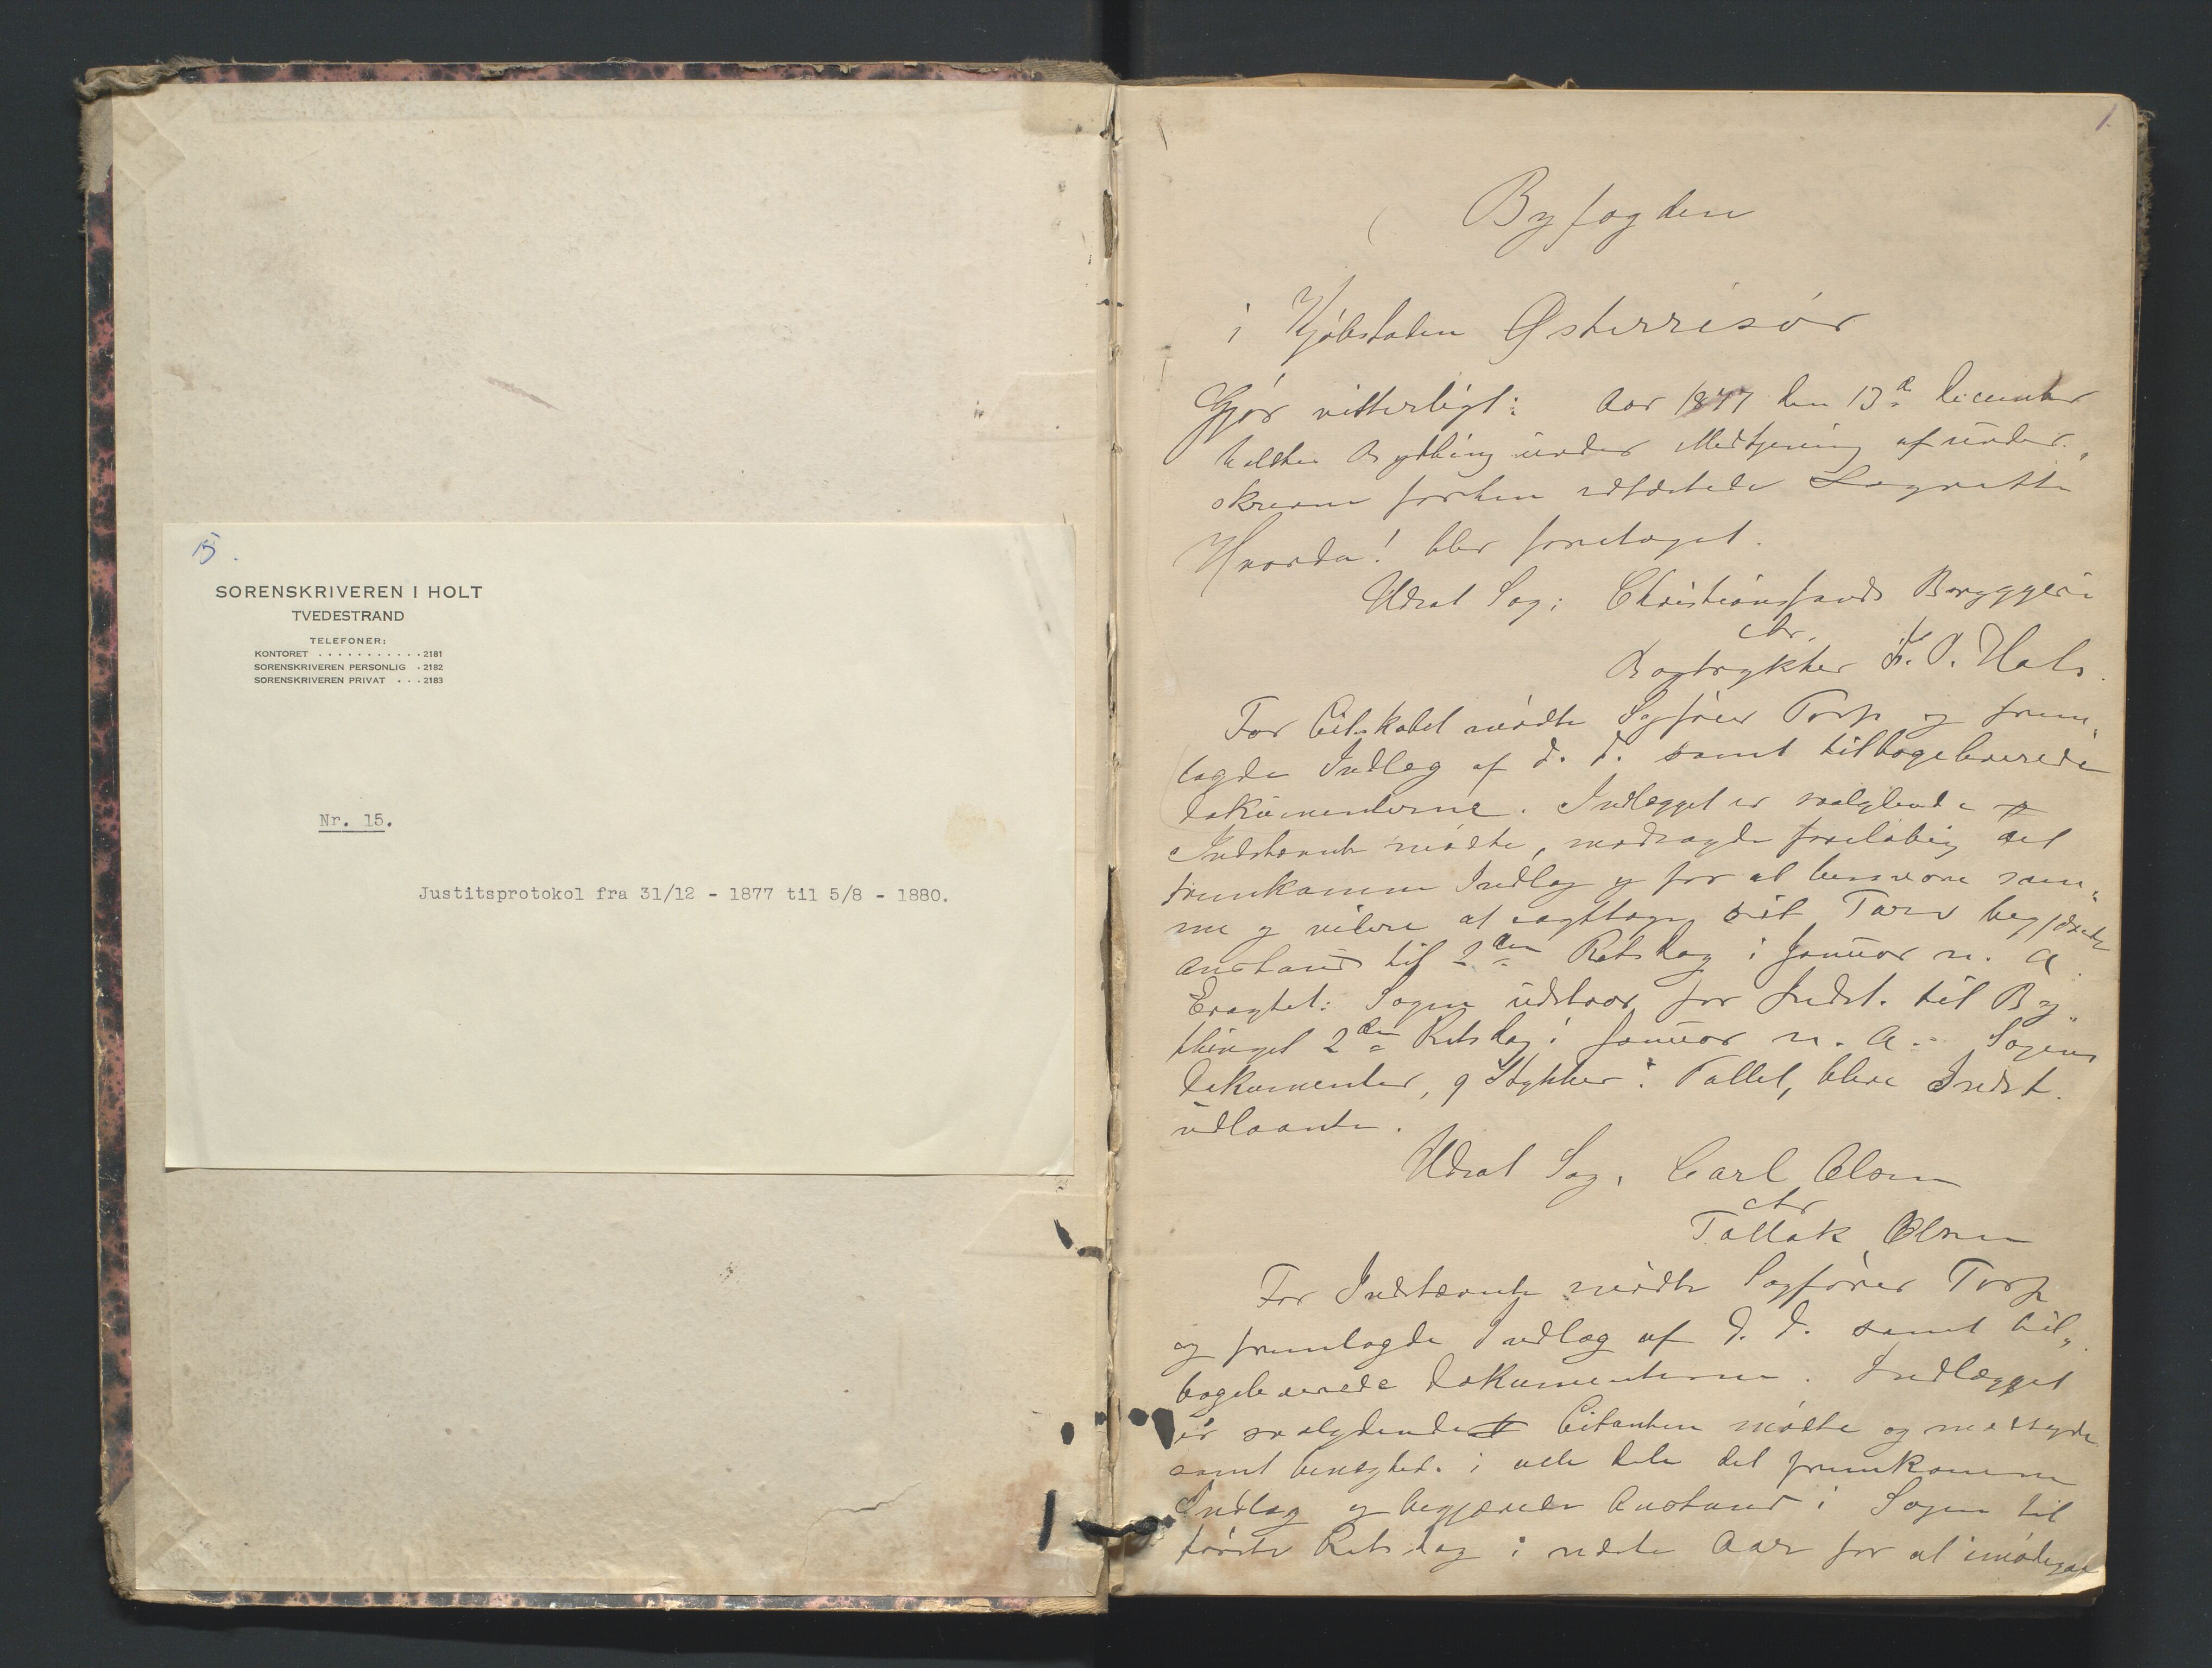 15.
SORENSKRIVEREN I HOLT
TVEDESTRAND
TELEFONER:
KONTORET . . . . . . . . . . . 2181
SORENSKRIVEREN PERSONLIG . 2182
SORENSKRIVEREN PRIVAT . . . 2183
Nr. 15.
Justitsprotokol fra 31/12 - 1877 til 5/8 - 1880.
1.
Byfogden
i Kjøbstaden Østerrisör
Gjør vitterligt: Aar 1877 den 13de December
holdtes Bything under Medtjening af under„
skrevne forhen edfæstede Lagrette
Hvorda! blev foretaget.
Udsat Sag: Christiansands Bryggeri
ctr.
Bogtrykker F. P. Hals.
For Citskabet mødte Sagfører Torp og frem„
lagde Indlæg af d. d. samt tilbageleverede
Dokumenterne. Indlægget er saalydende
Indstævnte mødte, modsagde foreløbig det
fremkomne Indlæg og for at besvare sam„
me og videre at iagttage sit Tarv begjærede
Anstand til 2den Retsdag i Januar n. A.
Eragtet: Sagen udstaar for Indst. til By„
thinget 2den Retsdag i Januar n. A. - Sagens
Dokumenter, 9 Stykker i Tallet, bleve Indst.
udlaante.
Udsat Sag, Carl Olsen
ctr
Tallak Olsen
For Indstævnte mødte Sagfører Torp
og fremlagde Indlæg af d. d. samt til„
bageleverede Dokumenterne. Indlægget
er saalydende Citanten mødte og modsagde
samt benægted. i alle dele det fremkomne
Indlæg og begjærede Anstand i Sagen til
første Retsdag i næste Aar for at imødegaa